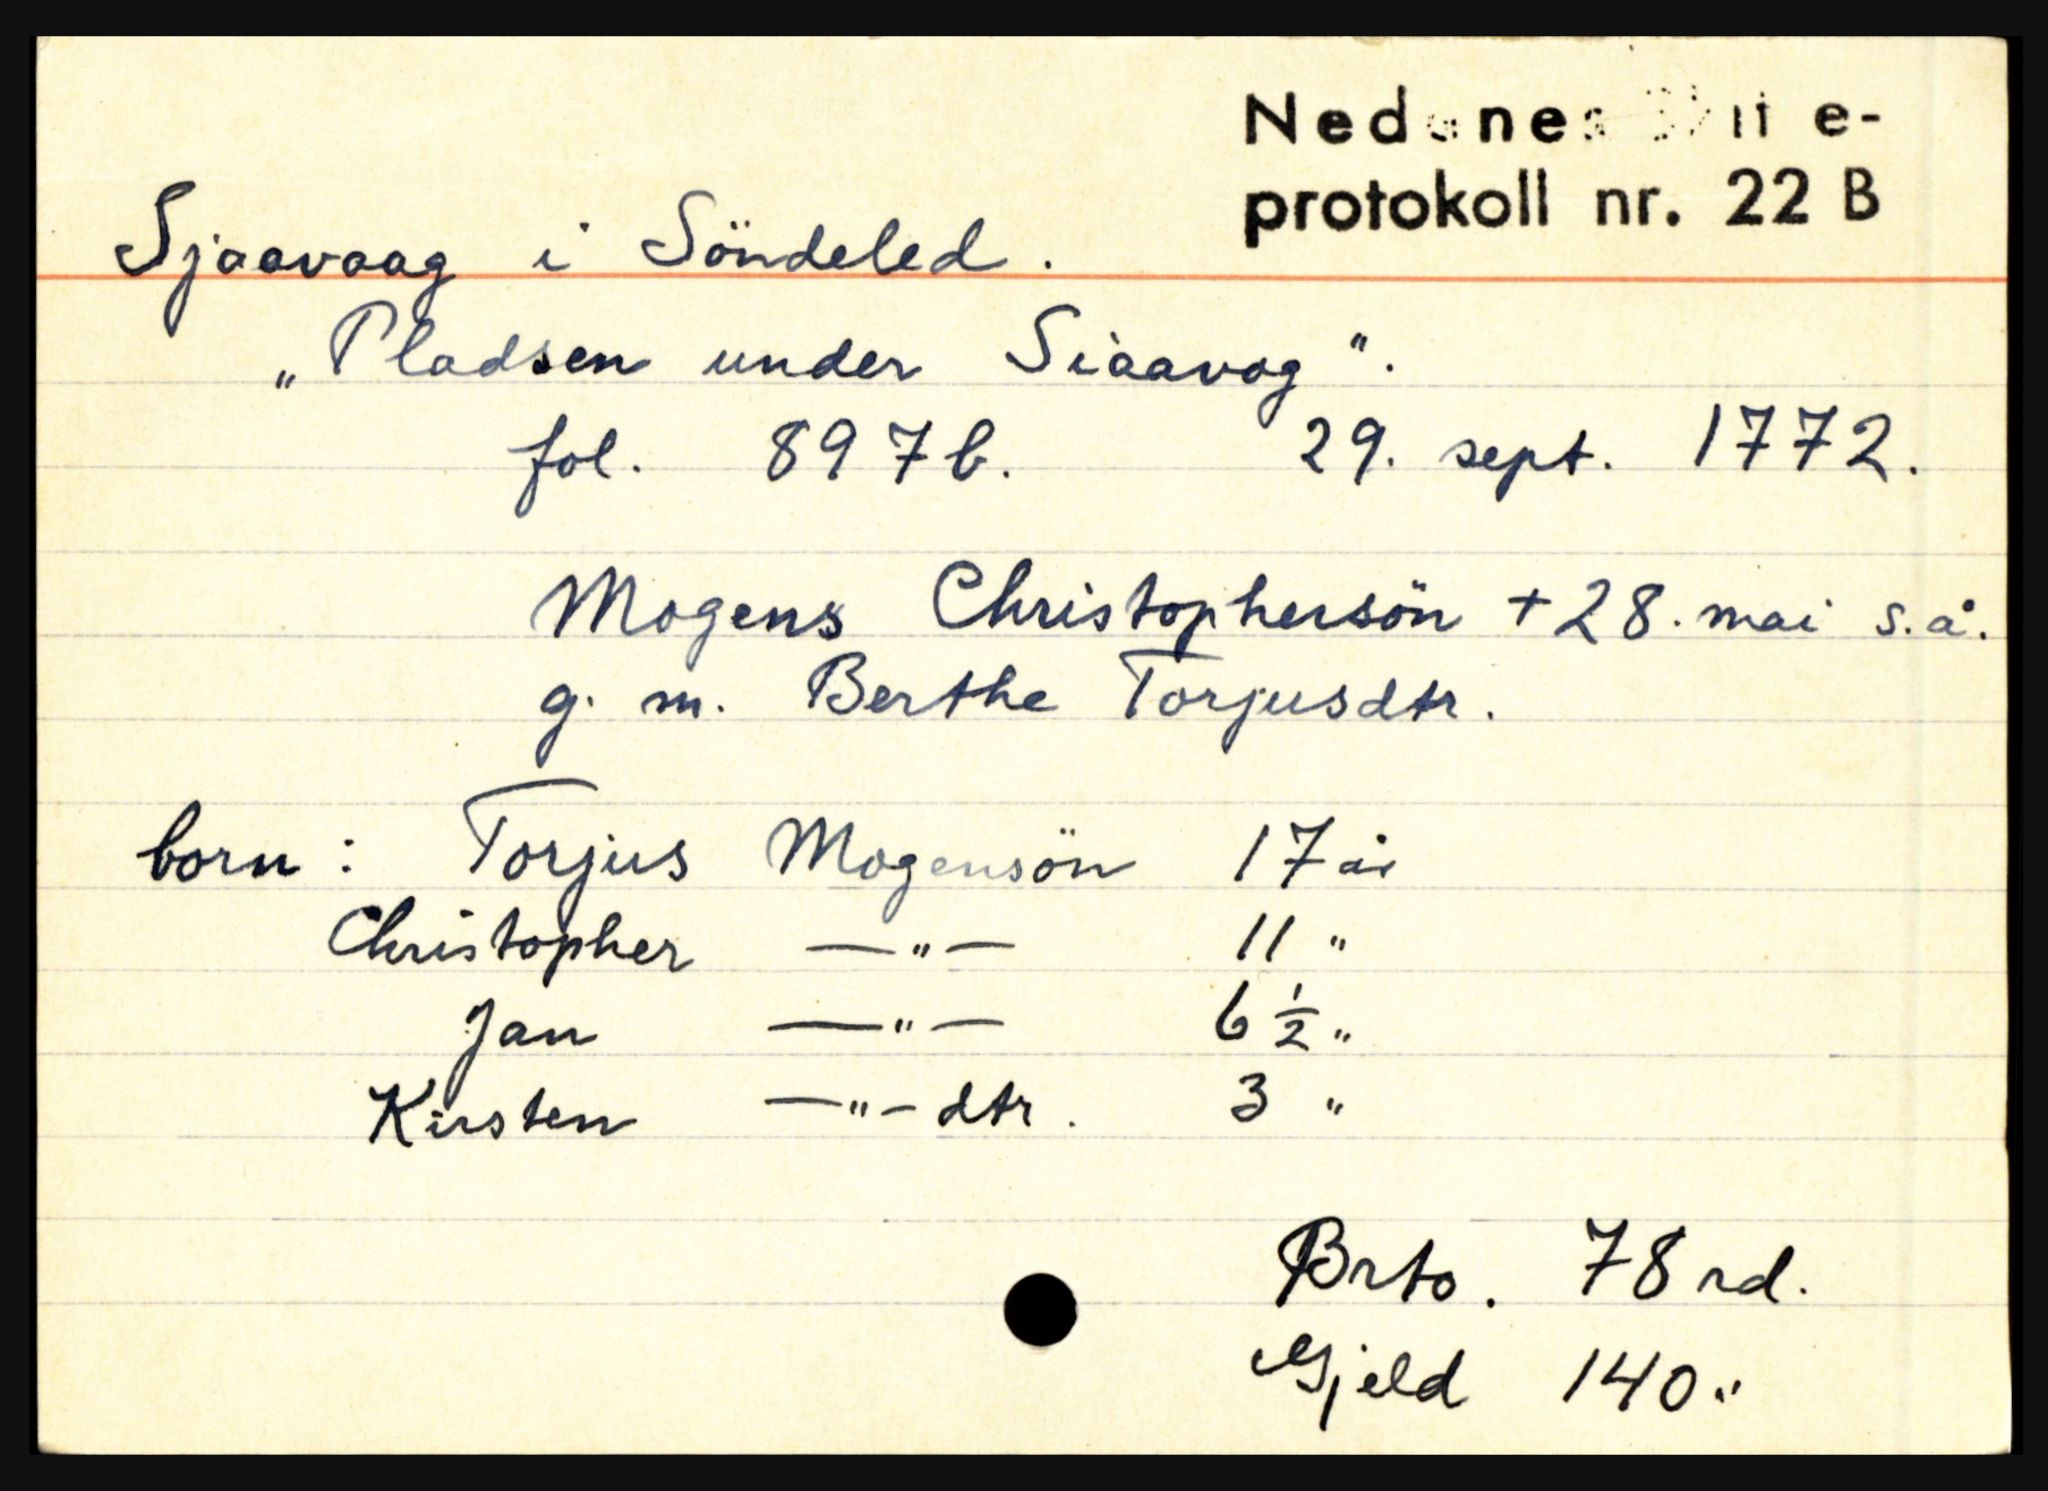 Nedenes
protokoll nr. 22 B
Sjaavaag i Söndeled.
„Pladsen under Siaavog".
fol. 897b. 29. sept. 1772.
Mogens Christophersön + 28. mai s.å.
g. m. Berthe Torjusdtr.
born: Torjus Mogensön 17 år
Christopher —"— 11 "
Jan —"— 6 ½ "
Kirsten —"— dtr. 3 "
Brto. 78 rd.
Gjeld 140 "